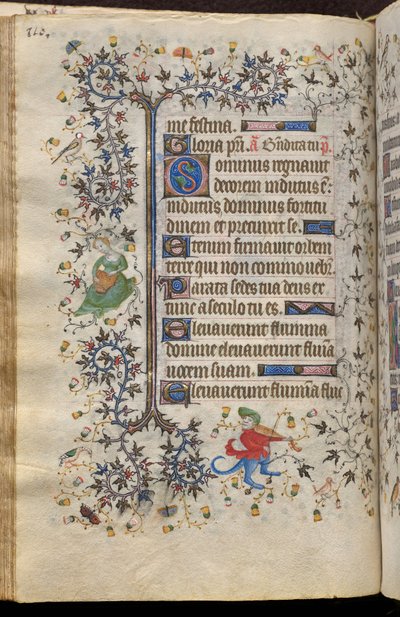 me festina.
Gloria pri. a Bndicta tu p.
Dominus regnauit
decorem indutus e:
indutus dominus fortitu
dinem et precinxit se.
Etenim firmauit orbem
terre qui non commouebr.
Parata sedes tua deus ex
tunc a seculo tu es.
Eleuauerunt flumina
domine eleuauerunt fluia
uocem suam.
Eleuauerunt flumia fluc